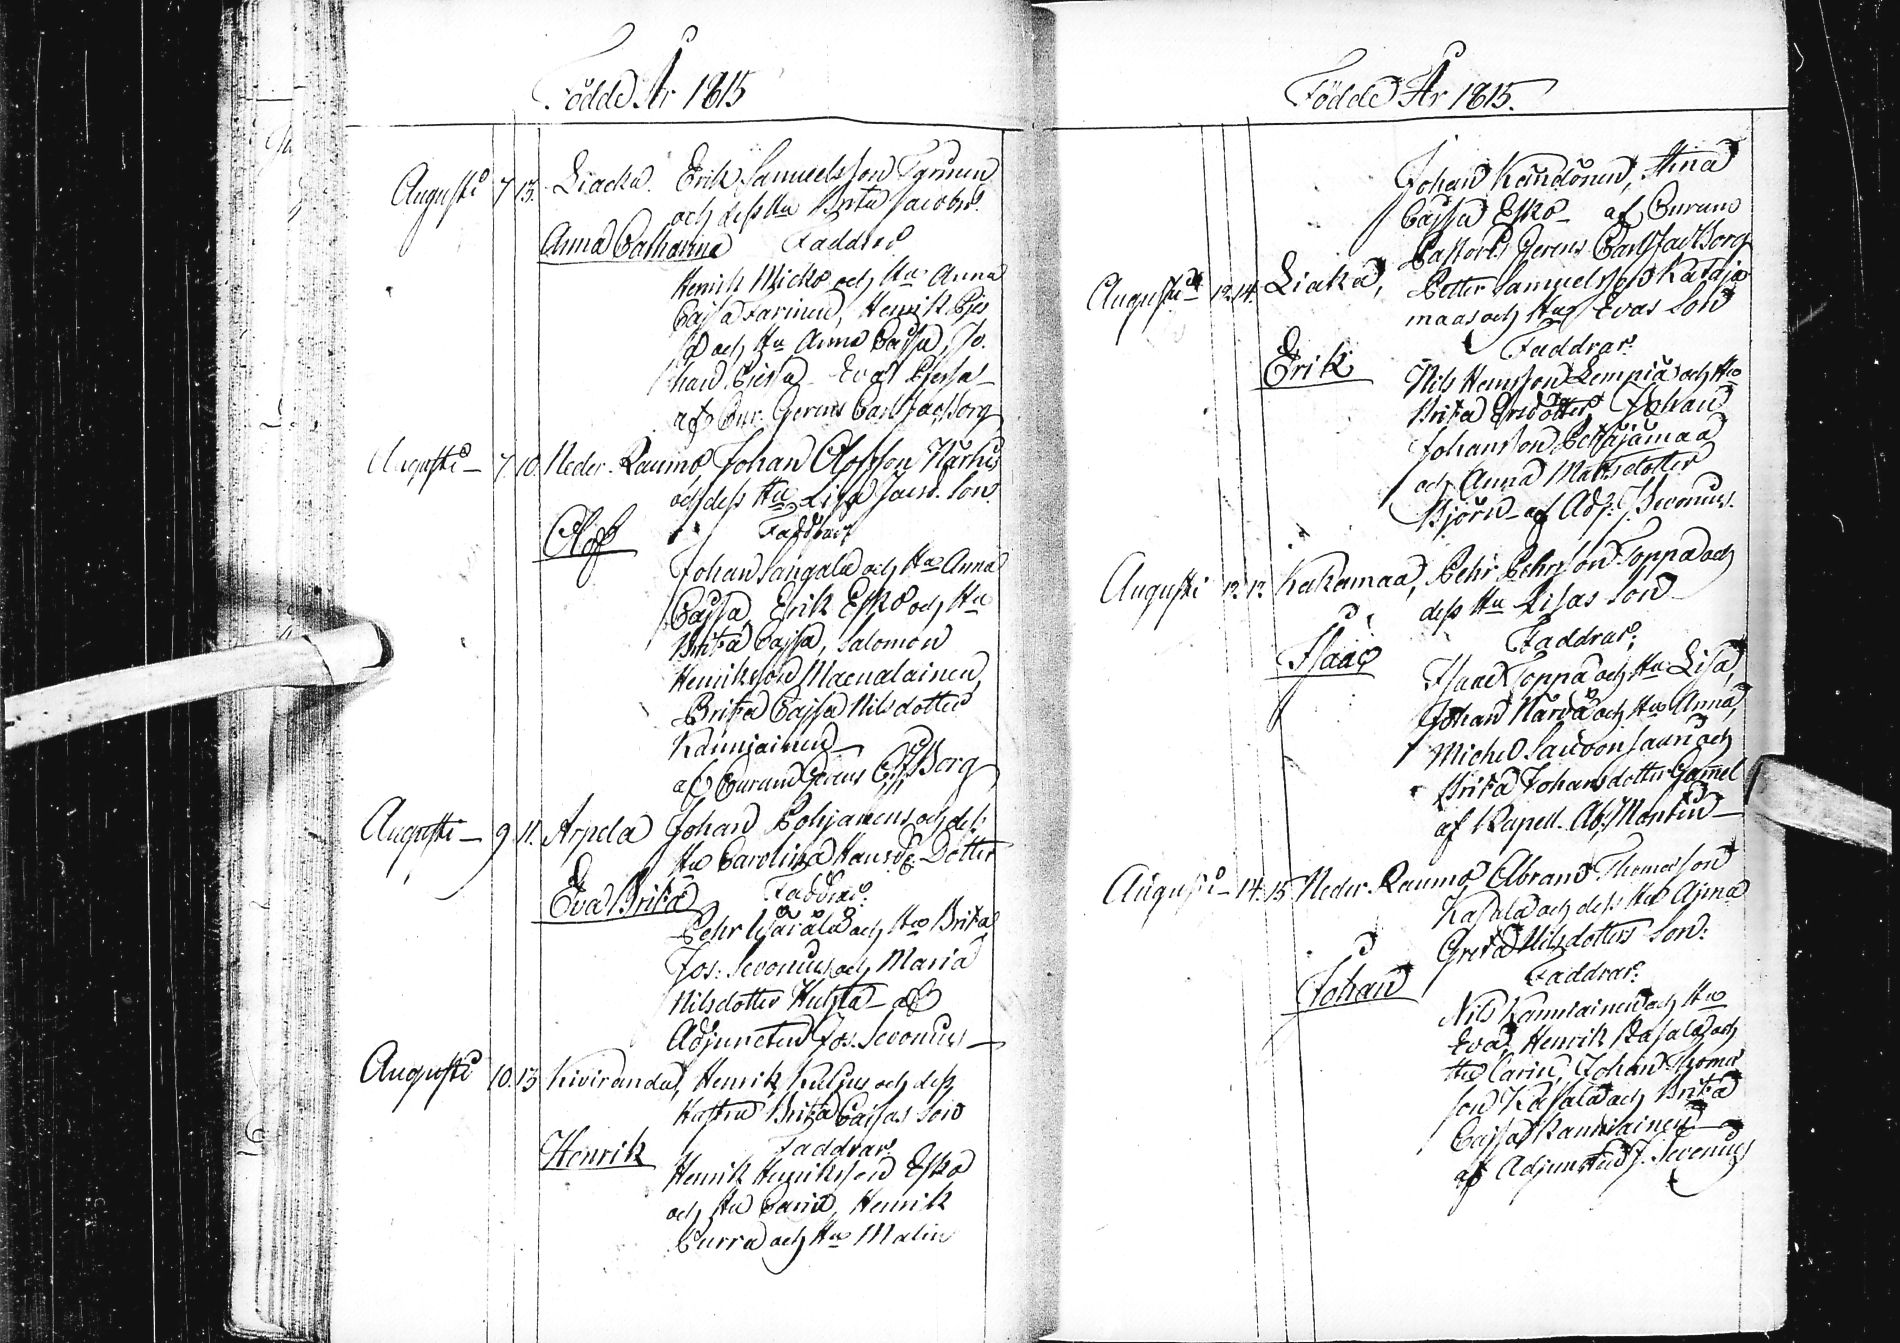 Födde År 1815
Augusti 7 13. Liacka. Erik Samuelsson Tynnin
och dess Hu Brita Jacobsd.
Anna Catharina Faddrar
Henrik Micko och Hu Anna
Cajsa Farinen, Henrik Pjes
och Hu Anna Cajsa, Jo-
han Eva Pjessa
af Cur. Gerens Carl Fad Borg
Augusti 7 10. Neder. Raumo Johan Olofsson Närhi
och dess Hu Lisa son
Olof Faddrar
Johan Sangala och Hu Anna
Cajsa, Erik Esko och Hu
Brita Cajsa, Salomon
Henriksson Maenalainen,
Brita Cajsa Nilsdotter
Kannjainen
af Curam Gerens C F Borg
Augusti 9 11. Arpela Johan Pohjanens och dess
Hu Carolina Hansd. Dotter
Eva Brita Faddrar:
Pehr och Hu Brita
Jos: Sevonius och Maria
Nilsdotter Huhta af
Adjuncten Jos. Sevonius
Augusti 10. 13 Kiviranda, Henrik Kuljus och dess
Hustru Brita Cajsas Son
Henrik Faddrar
Henrik Henriksson Esko
och Hu Carin, Henrik
Curra och Hu Malin
Födde År 1815.
Johan Keinönen, Stina
Cajsa Esko af Curam
Pastoris Gerens Carl Fad Borg
Augusti 12. 14. Liaka, Petter Samuelsson Kataja
maa och Hus Evas Son
Faddrar
Erik Nils Hensson Lempiä och Hu
Brita Ersdotter, Johan
Johansson Katajamaa
och Anna Matsdotter
Björn af Adj: J Sevonius.
Augusti 12. 12. Kakamaa, Pehr Pehrsson Toppa och
dess Hu Lisas Son
Faddrar:
Isaac Isaac Toppa och Hu Lisa,
Johan Närvä och Hu Anna,
Michel Savoonsaari och
Brita Johansdotter Gamel
af Kapell. Ab: Montin
Augusti 14. 15 Neder. Raumo Abram Thomasson
Kasala och dess Hu Anna
Greta Nilsdotters Son:
Johan Faddrar
Nils Kannlainen och Hu
Eva Henrik Kasala och
Hu Carin, Johan Thomas
son Kasala och Brita
Cajsa Kannlainen
af Adjuncten J. Sevonius